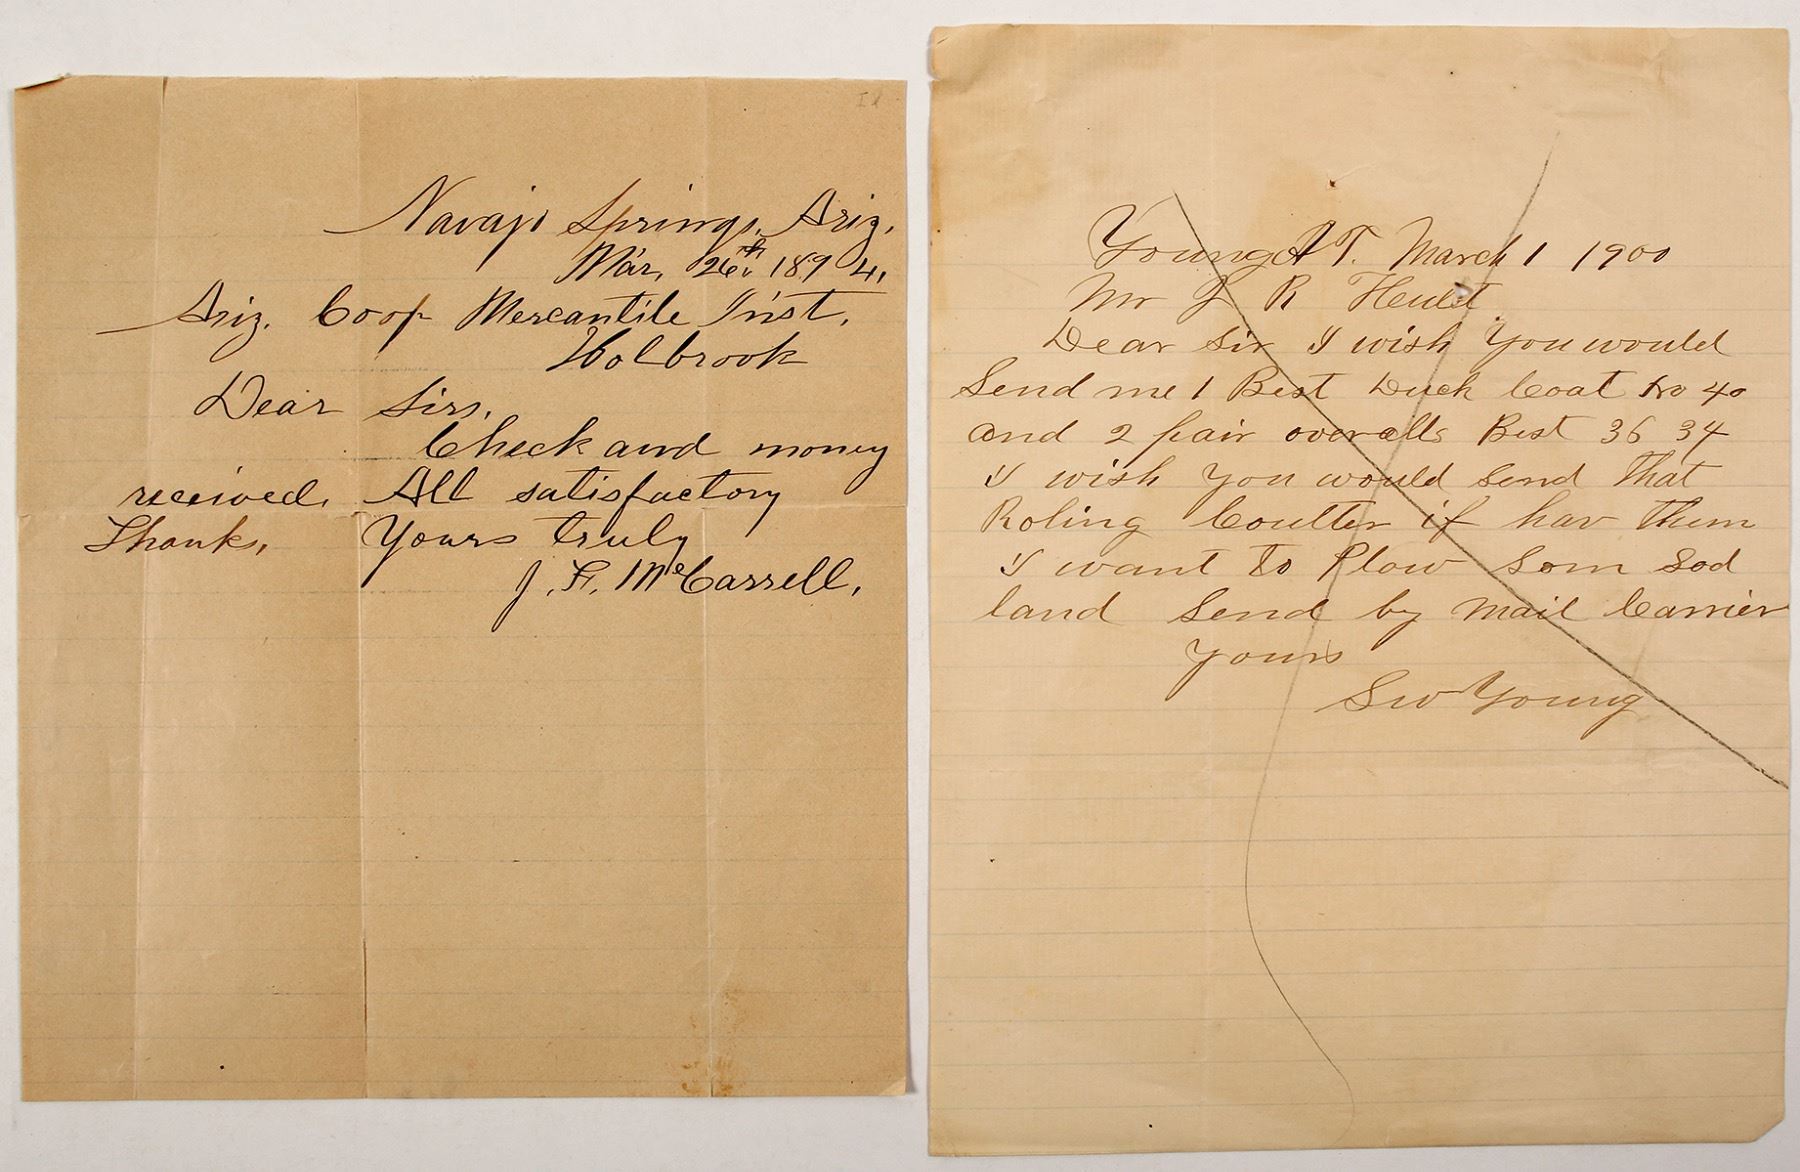 Navajo Springs, Ariz.
Mar. 26th 1894.
Ariz. Coop Mercantile Inst.
Holbrook
Dear Sirs,
Check and money
received. All satisfactory
Thanks, Yours truly
J. F. McCarrell.
Young A T. March 1 1900
Mr J R Heulet
Dear Sir I wish You would
Send me 1 Best Duck Coat No 40
and 2 pair overalls Best 36 34
I wish You would Send that
Roling Coulter if hav them
I want to Plow Som Sod
land Send by mail Carrier
Yours
Young